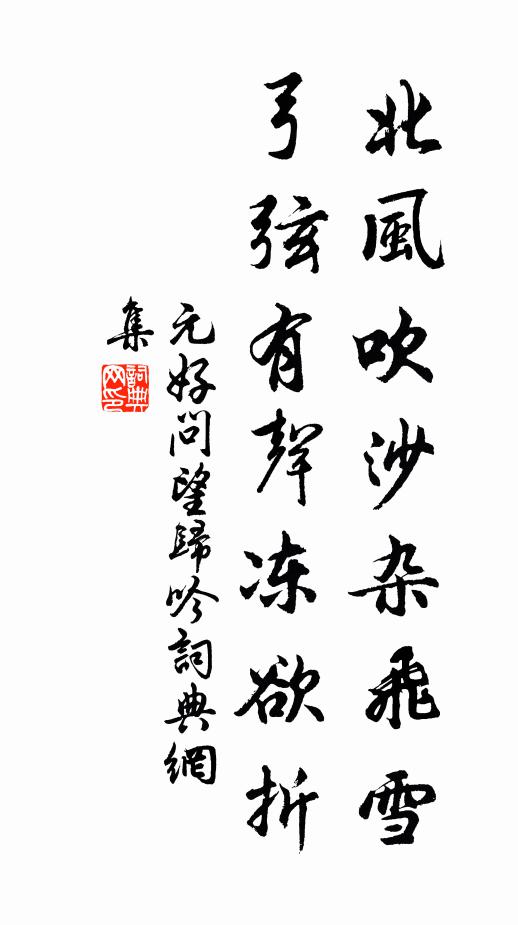 北風吹沙杂飛雪
弓弦有聲冻欲折
元好问望歸吟詞典網
集
詞典网印